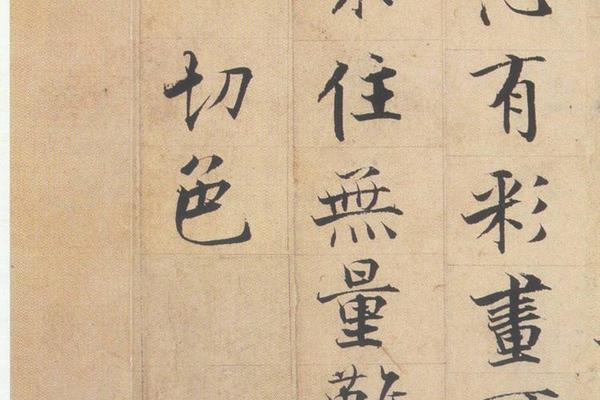 有彩畫
住無量難
切色